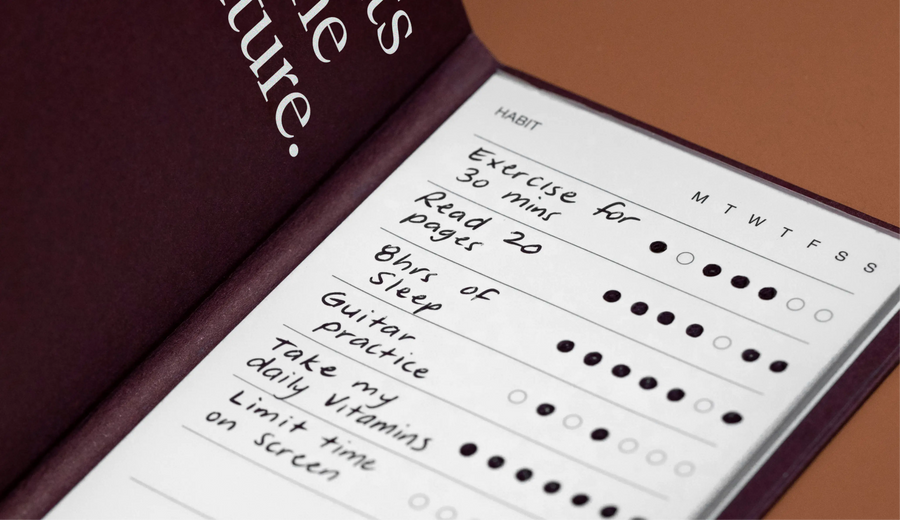 ts
ne
ture.
HABIT
M T W T F S S
Exercise for
30 mins
Read 20
pages
8hrs of
Sleep
Guitar
practice
Take my
daily Vitamins
Limit time
on screen